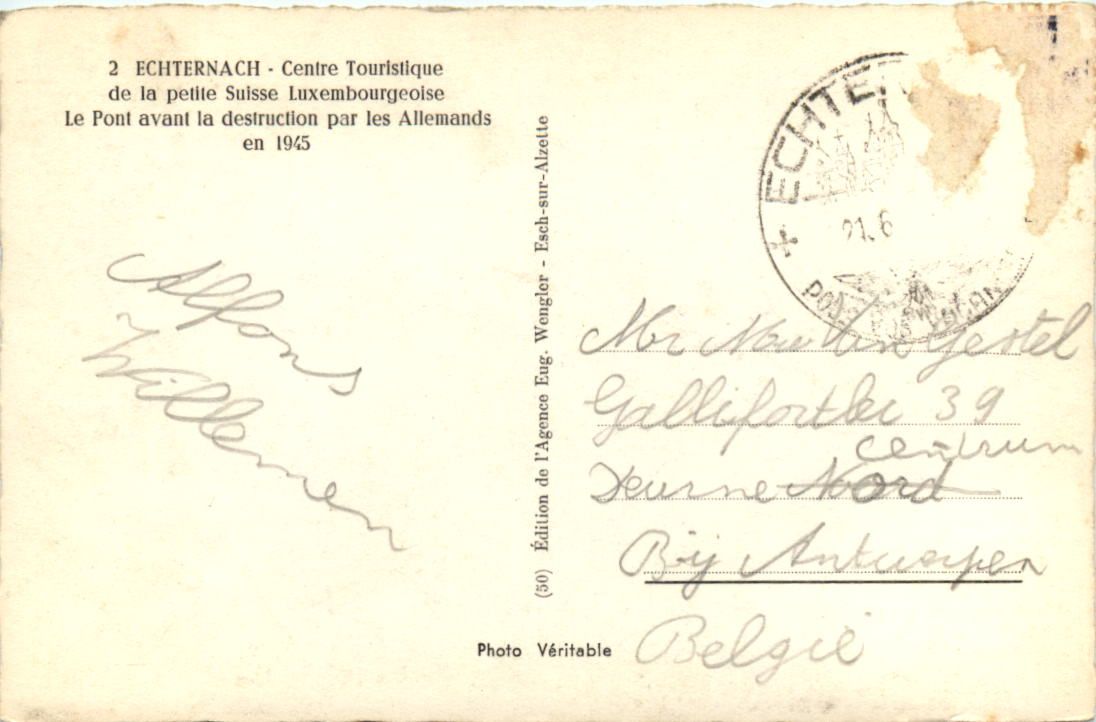 2 ECHTERNACH - Centre Touristique
de la petite Suisse Luxembourgeoise
Le Pont avant la destruction par les Allemands
en 1945
Alfons
Willemen
(50) Édition de l'Agence Eug. Wengler - Esch-sur-Alzette
Photo Véritable
+ ECHTE
21.6
Mr Van Gestel
Gallifortlei 39
centrum
Deurne Noord
Bij Antwerpen
België